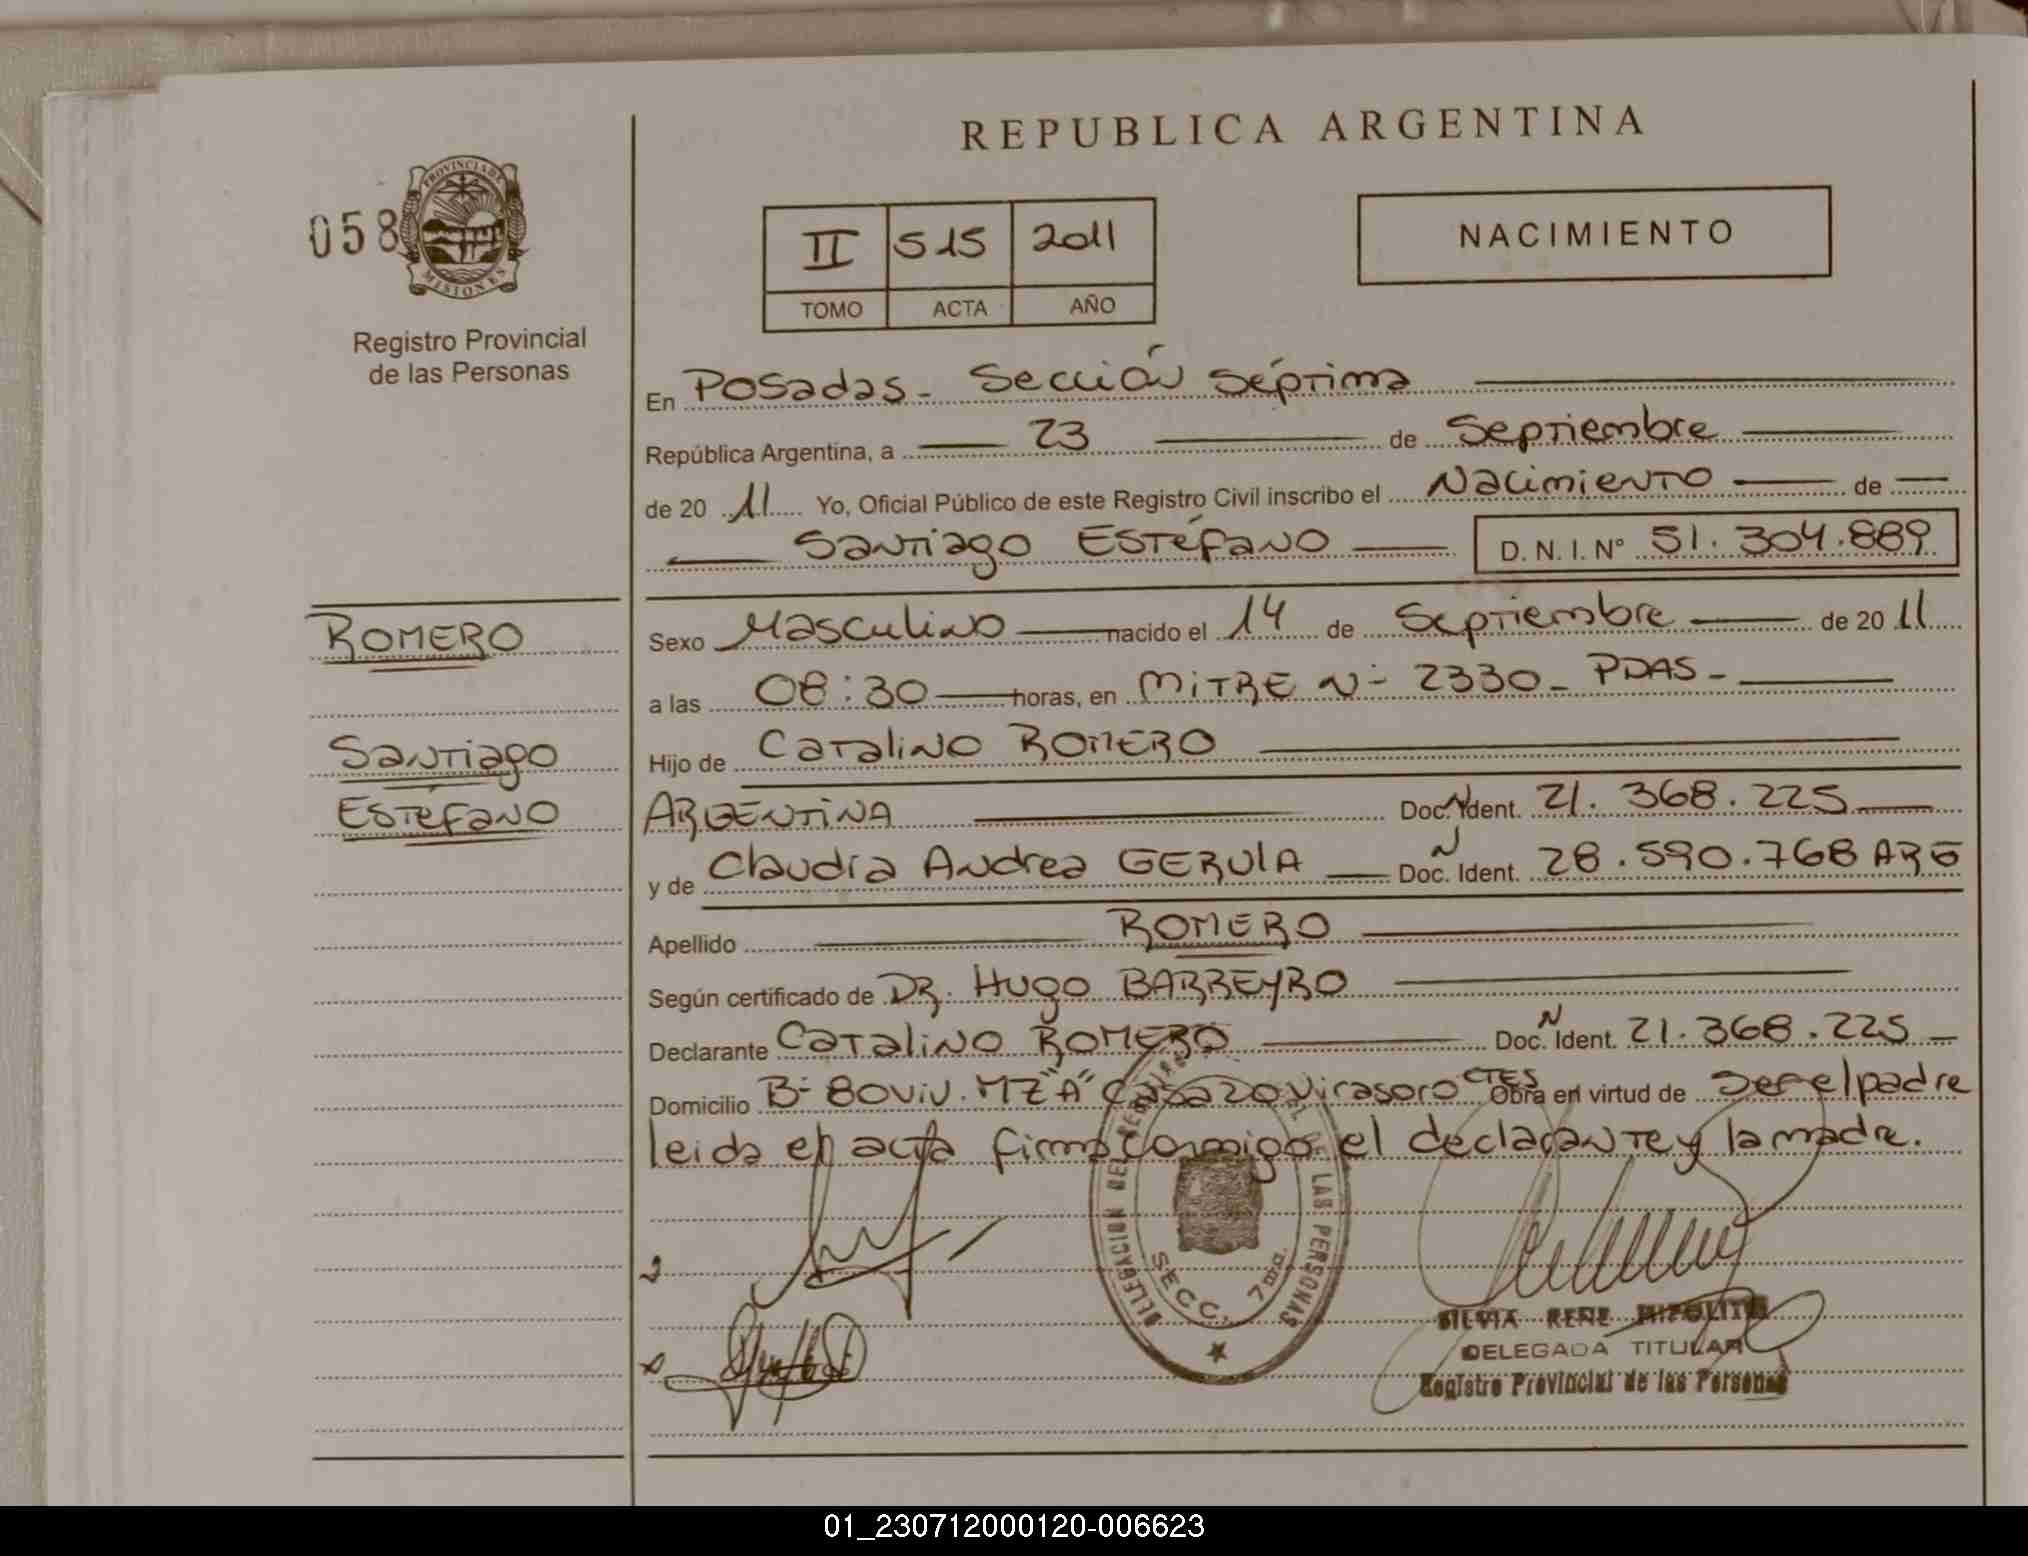 REPUBLICA ARGENTINA
058
PROVINCIA DE
MISIONES
Registro Provincial
de las Personas
II 515 2011
TOMO ACTA AÑO
NACIMIENTO
En Posadas - Sección Séptima
República Argentina, a 23 de Septiembre
de 20 11 Yo, Oficial Público de este Registro Civil inscribo el Nacimiento de
Santiago Estéfano D. N. I. N° 51.304.889
ROMERO
Santiago
Estéfano
Sexo Masculino nacido el 14 de Septiembre de 20 11
a las 08:30 horas, en MITRE Nº 2330 - PDAS -
Hijo de Catalino ROMERO
ARGENTINA Doc. N Ident. 21.368.225
y de Claudia Andrea GERULA Doc. N Ident. 28.590.768 ARG
Apellido ROMERO
Según certificado de DR. Hugo BARREYRO
Declarante Catalino ROMERO Doc. N Ident. 21.368.225
Domicilio Bº 80 viv. MZ "A" casa 20 Virasoro CTES Obra en virtud de ser el padre
leida el acta firma conmigo el declarante y la madre.
DELEGACION DE REGISTRO DE LAS PERSONAS
SECC. 7ma.
SILVIA RENE HIPOLITO
DELEGADA TITULAR
Registro Provincial de las Personas
01_230712000120-006623